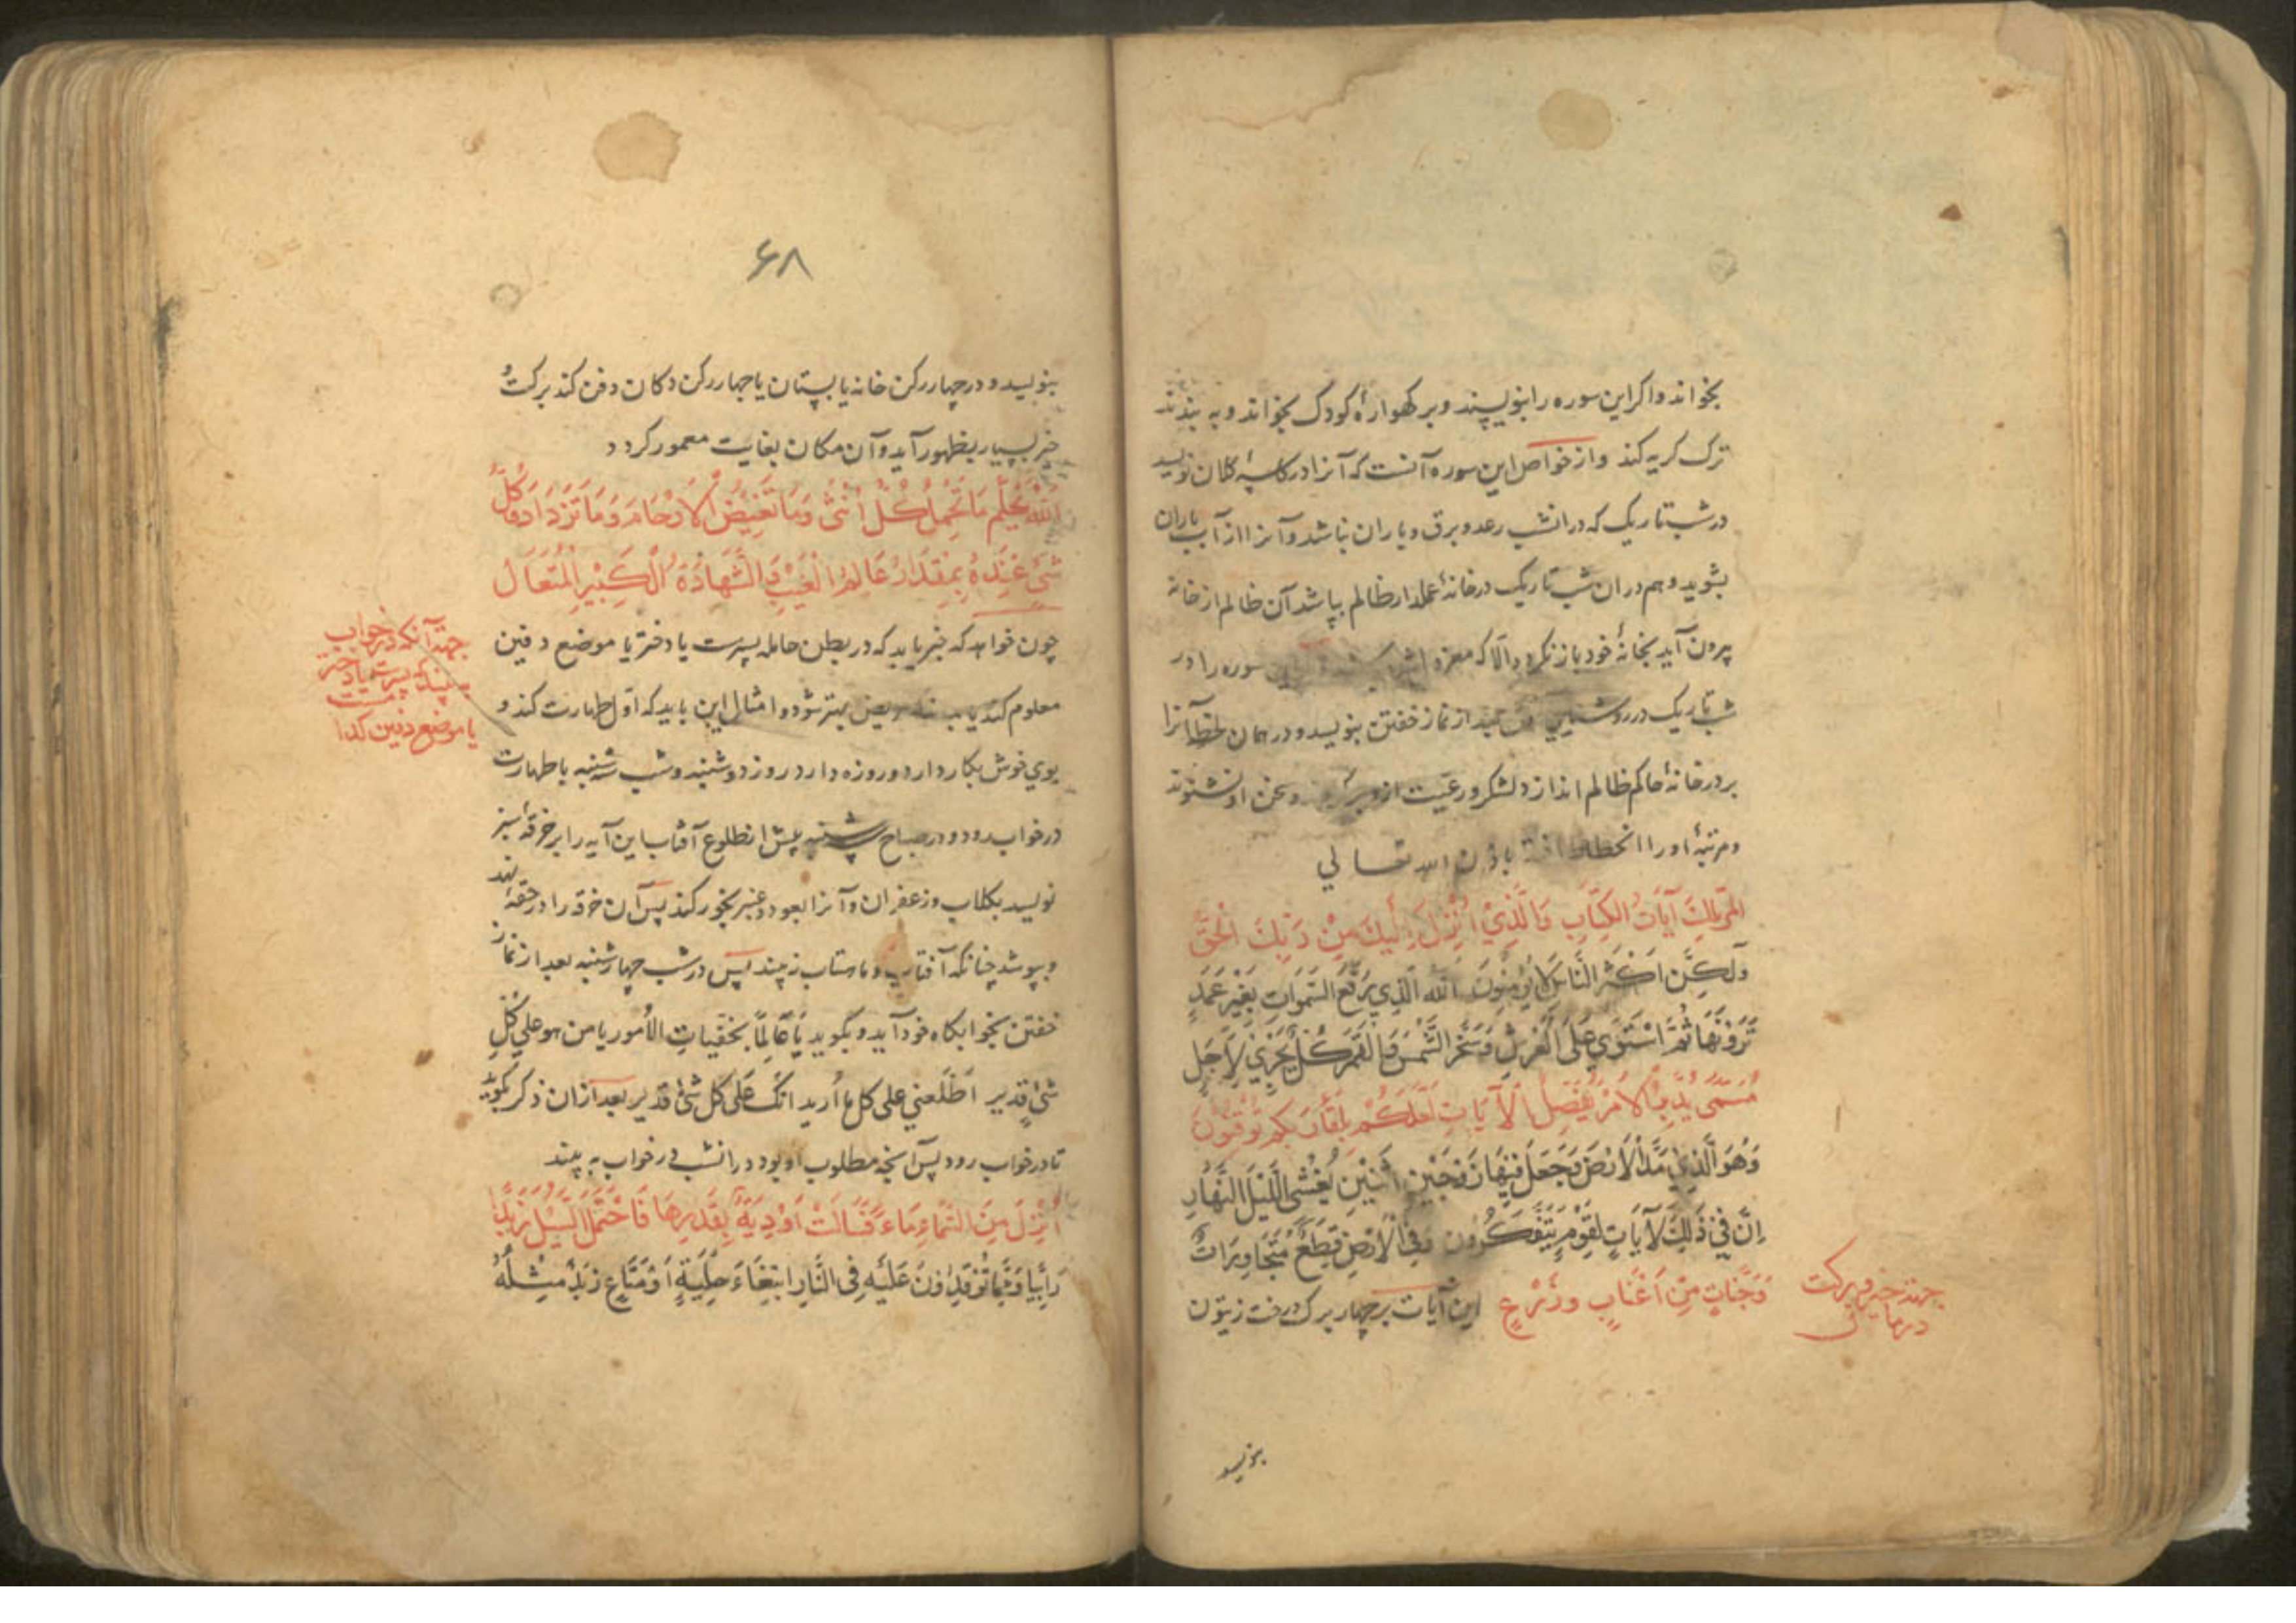 بخواند و اکر این سوره را بنویسند و بر کهوارهٔ کودک بخواند و به بندند
ترک کریه کند و از خواص این سوره آنست که آنرا در کاسهٔ کلان نویسد
در شب تاریک که در انشب رعد و برق و باران باشد و آنرا از آب باران
بشوید و هم در ان شب تاریک در خانهٔ عملدار ظالم بپاشد آن ظالم از خانه
بیرون آید بخانهٔ خود باز نکردد الا که معزول سوره را در
شب تاریک در روشنایی بعد از نماز خفتن بنویسد و در همان لحظه آنرا
بر در خانهٔ حاکم ظالم اندازد لشکر و رعیت از و سخن او نشنوند
و مرتبهٔ او را انحطاط باذن الله تعالی
المر تلك آيات الكتاب والذي أنزل إليك من ربك الحق
ولكن اكثر الناس لا يؤمنون الله الذي رفع السموات بغير عمد
ترونها ثم استوي على العرش وسخر الشمس والقمر كل يجري لأجل
مسمى يدبر الأمر يفصل الآيات لعلكم بلقاء ربكم توقنون
وهو الذي مد الأرض وجعل فيها زوجين اثنين يغشي الليل النهار
إن في ذلك لآيات لقوم يتفكرون وفي الأرض قطع متجاورات
وجنات من أعناب وزرع این آیات بر چهار برک درخت زیتون
جهته خیر و برکت
بنویسد
۶۸
بنویسد و در چهار رکن خانه یا بستان یا چهار رکن دکان دفن کند برکت و
خیر بسیار بظهور آید و آن مکان بغایت معمور کردد
الله يعلم ما تحمل كل أنثى وما تغيض الأرحام وما تزداد وكل
شئ عنده بمقدار عالم الغيب والشهادة الكبير المتعال
چون خواهد که خبر یابد که در بطن حامله پسرست یا دختر یا موضع دفین
معلوم کند یا بهتر شود و امثال این باید که اول طهارت کند و
بوی خوش بکار دارد و روزه دارد روز دوشنبه و شب سه شنبه با طهارت
در خواب رود و در صباح سه شنبه پیش از طلوع آفتاب این آیه را بر خرقهٔ سبز
نویسد بکلاب و زعفران و آنرا بعود و عنبر بخور کند پس آن خرقه را در حقهٔ نهد
و بپوشد چنانکه آفتاب و ماهتاب نه بیند پس در شب چهارشنبه بعد از نماز
خفتن بخوابکاه خود آید و بکوید يا عالما بخفيات الأمور يا من هو علي كل
شئ قدير اطلعني على كل ما أريد انك على كل شئ قدير بعد ازان ذکر بکوید
تا در خواب رود پس آنچه مطلوب او بود در انشب در خواب به بیند
أنزل من السماء ماء فسالت أودية بقدرها فاحتمل السيل زبدا
رابيا ومما توقدون عليه في النار ابتغاء حلية أو متاع زبد مثله
جهته آنکه در خواب
بیند که پسرست یا دختر
یا موضع دفین کدا